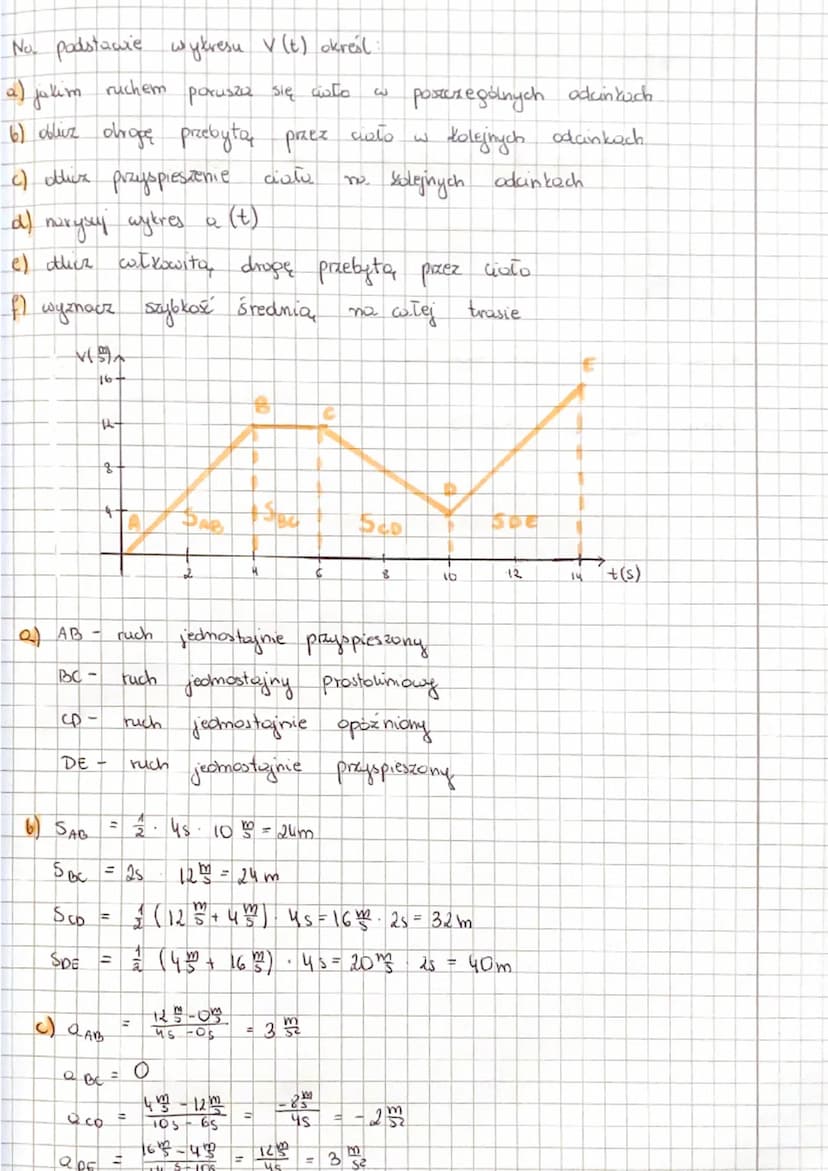 Na podstawie wykresu V(t) określ:
a) jakim ruchem porusza się ciało w poszczególnych odcinkach
b) oblicz drogę przebytą przez ciało w kolejnych odcinkach
c) oblicz przyspieszenie ciała na kolejnych odcinkach
d) narysuj wykres a(t)
e) oblicz całkowitą drogę przebytą przez ciało
f) wyznacz szybkość średnią na całej trasie
V(m/s)
16
12
8
4
A
B
C
D
E
SAB
SBC
SCD
SDE
2 4 6 8 10 12 14 t(s)
a) AB - ruch jednostajnie przyspieszony
BC - ruch jednostajny prostoliniowy
CD - ruch jednostajnie opóźniony
DE - ruch jednostajnie przyspieszony
b) SAB = 1/2 · 4s · 10 m/s = 24m
SBC = 2s · 12 m/s = 24 m
SCD = 1/2 (12 m/s + 4 m/s) · 4s = 16 m/s · 2s = 32m
SDE = 1/2 (4 m/s + 16 m/s) · 4s = 20 m/s · 2s = 40m
c) aAB = 12 m/s - 0 m/s / 4s - 0s = 3 m/s²
aBC = 0
aCD = 4 m/s - 12 m/s / 10s - 6s = -8 m/s / 4s = -2 m/s²
aDE = 16 m/s - 4 m/s / 14s - 10s = 12 m/s / 4s = 3 m/s²